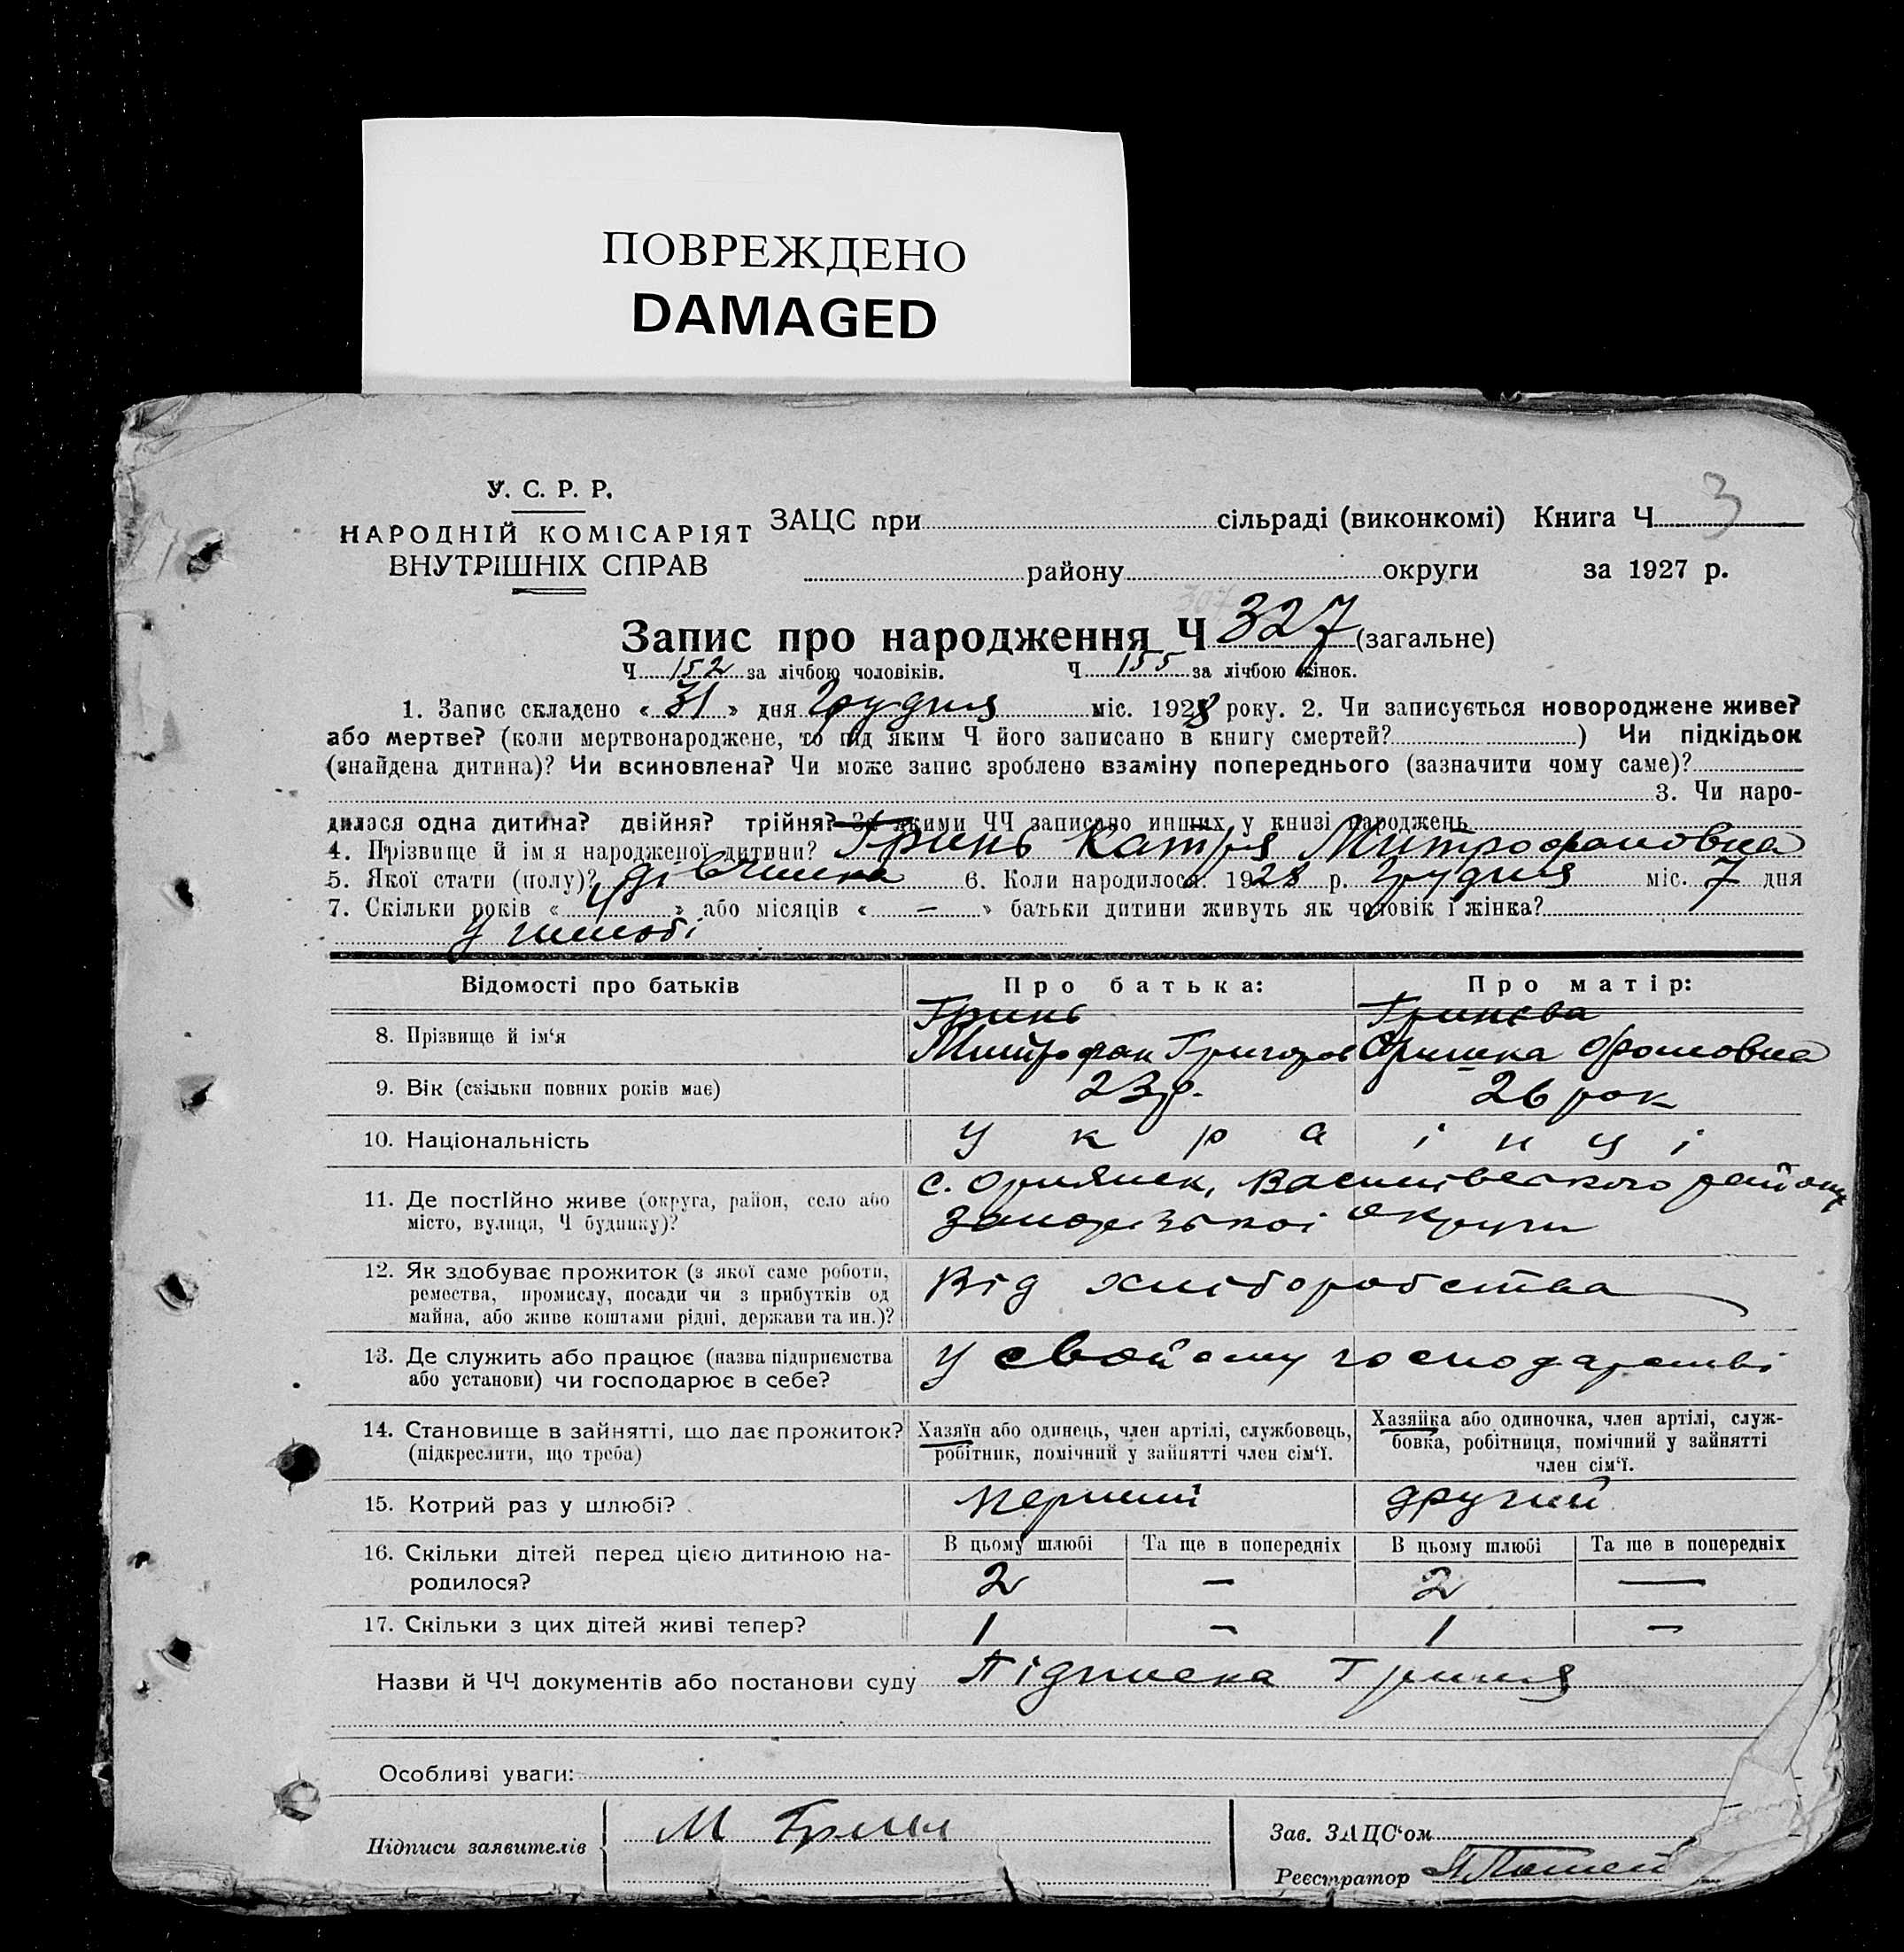 ПОВРЕЖДЕНО
DAMAGED
У. С. Р. Р.
НАРОДНІЙ КОМІСАРІЯТ
ВНУТРІШНІХ СПРАВ
ЗАЦС при сільраді (виконкомі) Книга Ч 3
району округи за 1927 р.
307
Запис про народження Ч 327 (загальне)
Ч 152 за лічбою чоловіків. Ч 155 за лічбою жінок.
1. Запис складено « 31 » дня Грудня міс. 1928 року. 2. Чи записується новороджене живе?
або мертве? (коли мертвонароджене, то під яким Ч його записано в книгу смертей? ) Чи підкідьок
(знайдена дитина)? Чи всиновлена? Чи може запис зроблено взаміну попереднього (зазначити чому саме)?
3. Чи наро-
дилася одна дитина? двійня? трійня? За якими ЧЧ записано инших у книзі народжень
4. Прізвище й ім я народженої дитини? Гринь Катря Митрофановна
5. Якої стати (полу)? дівчинка 6. Коли народилося. 1928 р. Грудня міс. 7 дня
7. Скільки років « 4 » або місяців « – » батьки дитини живуть як чоловік і жінка?
У шлюбі
Відомості про батьків
Про батька:
Про матір:
8. Прізвище й ім‘я
Гринь
Митрофан Григоров
Гринєва
Оришка Фомовна
9. Вік (скільки повних років має)
23 р.
26 рок
10. Національність
Українці
11. Де постІйно живе (округа, район, село або
місто, вулиця, Ч будинку)?
с. Орлянск, Василівського району
Запорізької округи
12. Як здобуває прожиток (з якої саме роботи,
ремества, промислу, посади чи з прибутків од
майна, або живе коштами рідні, держави та ин.)?
Від хліборобства
13. Де служить або працює (назва підприємства
або установи) чи господарює в себе?
У свойому господарстві
14. Становище в зайнятті, що дає прожиток?
(підкреслити, що треба)
Хазяїн або одинець, член артілі, службовець,
робітник, помічний у зайнятті член сім‘ї.
Хазяйка або одиночка, член артілі, служ-
бовка, робітниця, помічний у зайнятті
член сім‘ї.
15. Котрий раз у шлюбі?
перший
другий
16. Скільки дітей перед цією дитиною на-
родилося?
В цьому шлюбі
Та ще в попередніх
В цьому шлюбі
Та ще в попередніх
2 – 2 –
17. Скільки з цих дітей живі тепер?
1 – 1 –
Назви й ЧЧ документів або постанови суду Підписка Гриня
Особливі уваги:
Підписи заявителів
М Гринь
Зав. ЗАЦС‘ом
Реєстратор